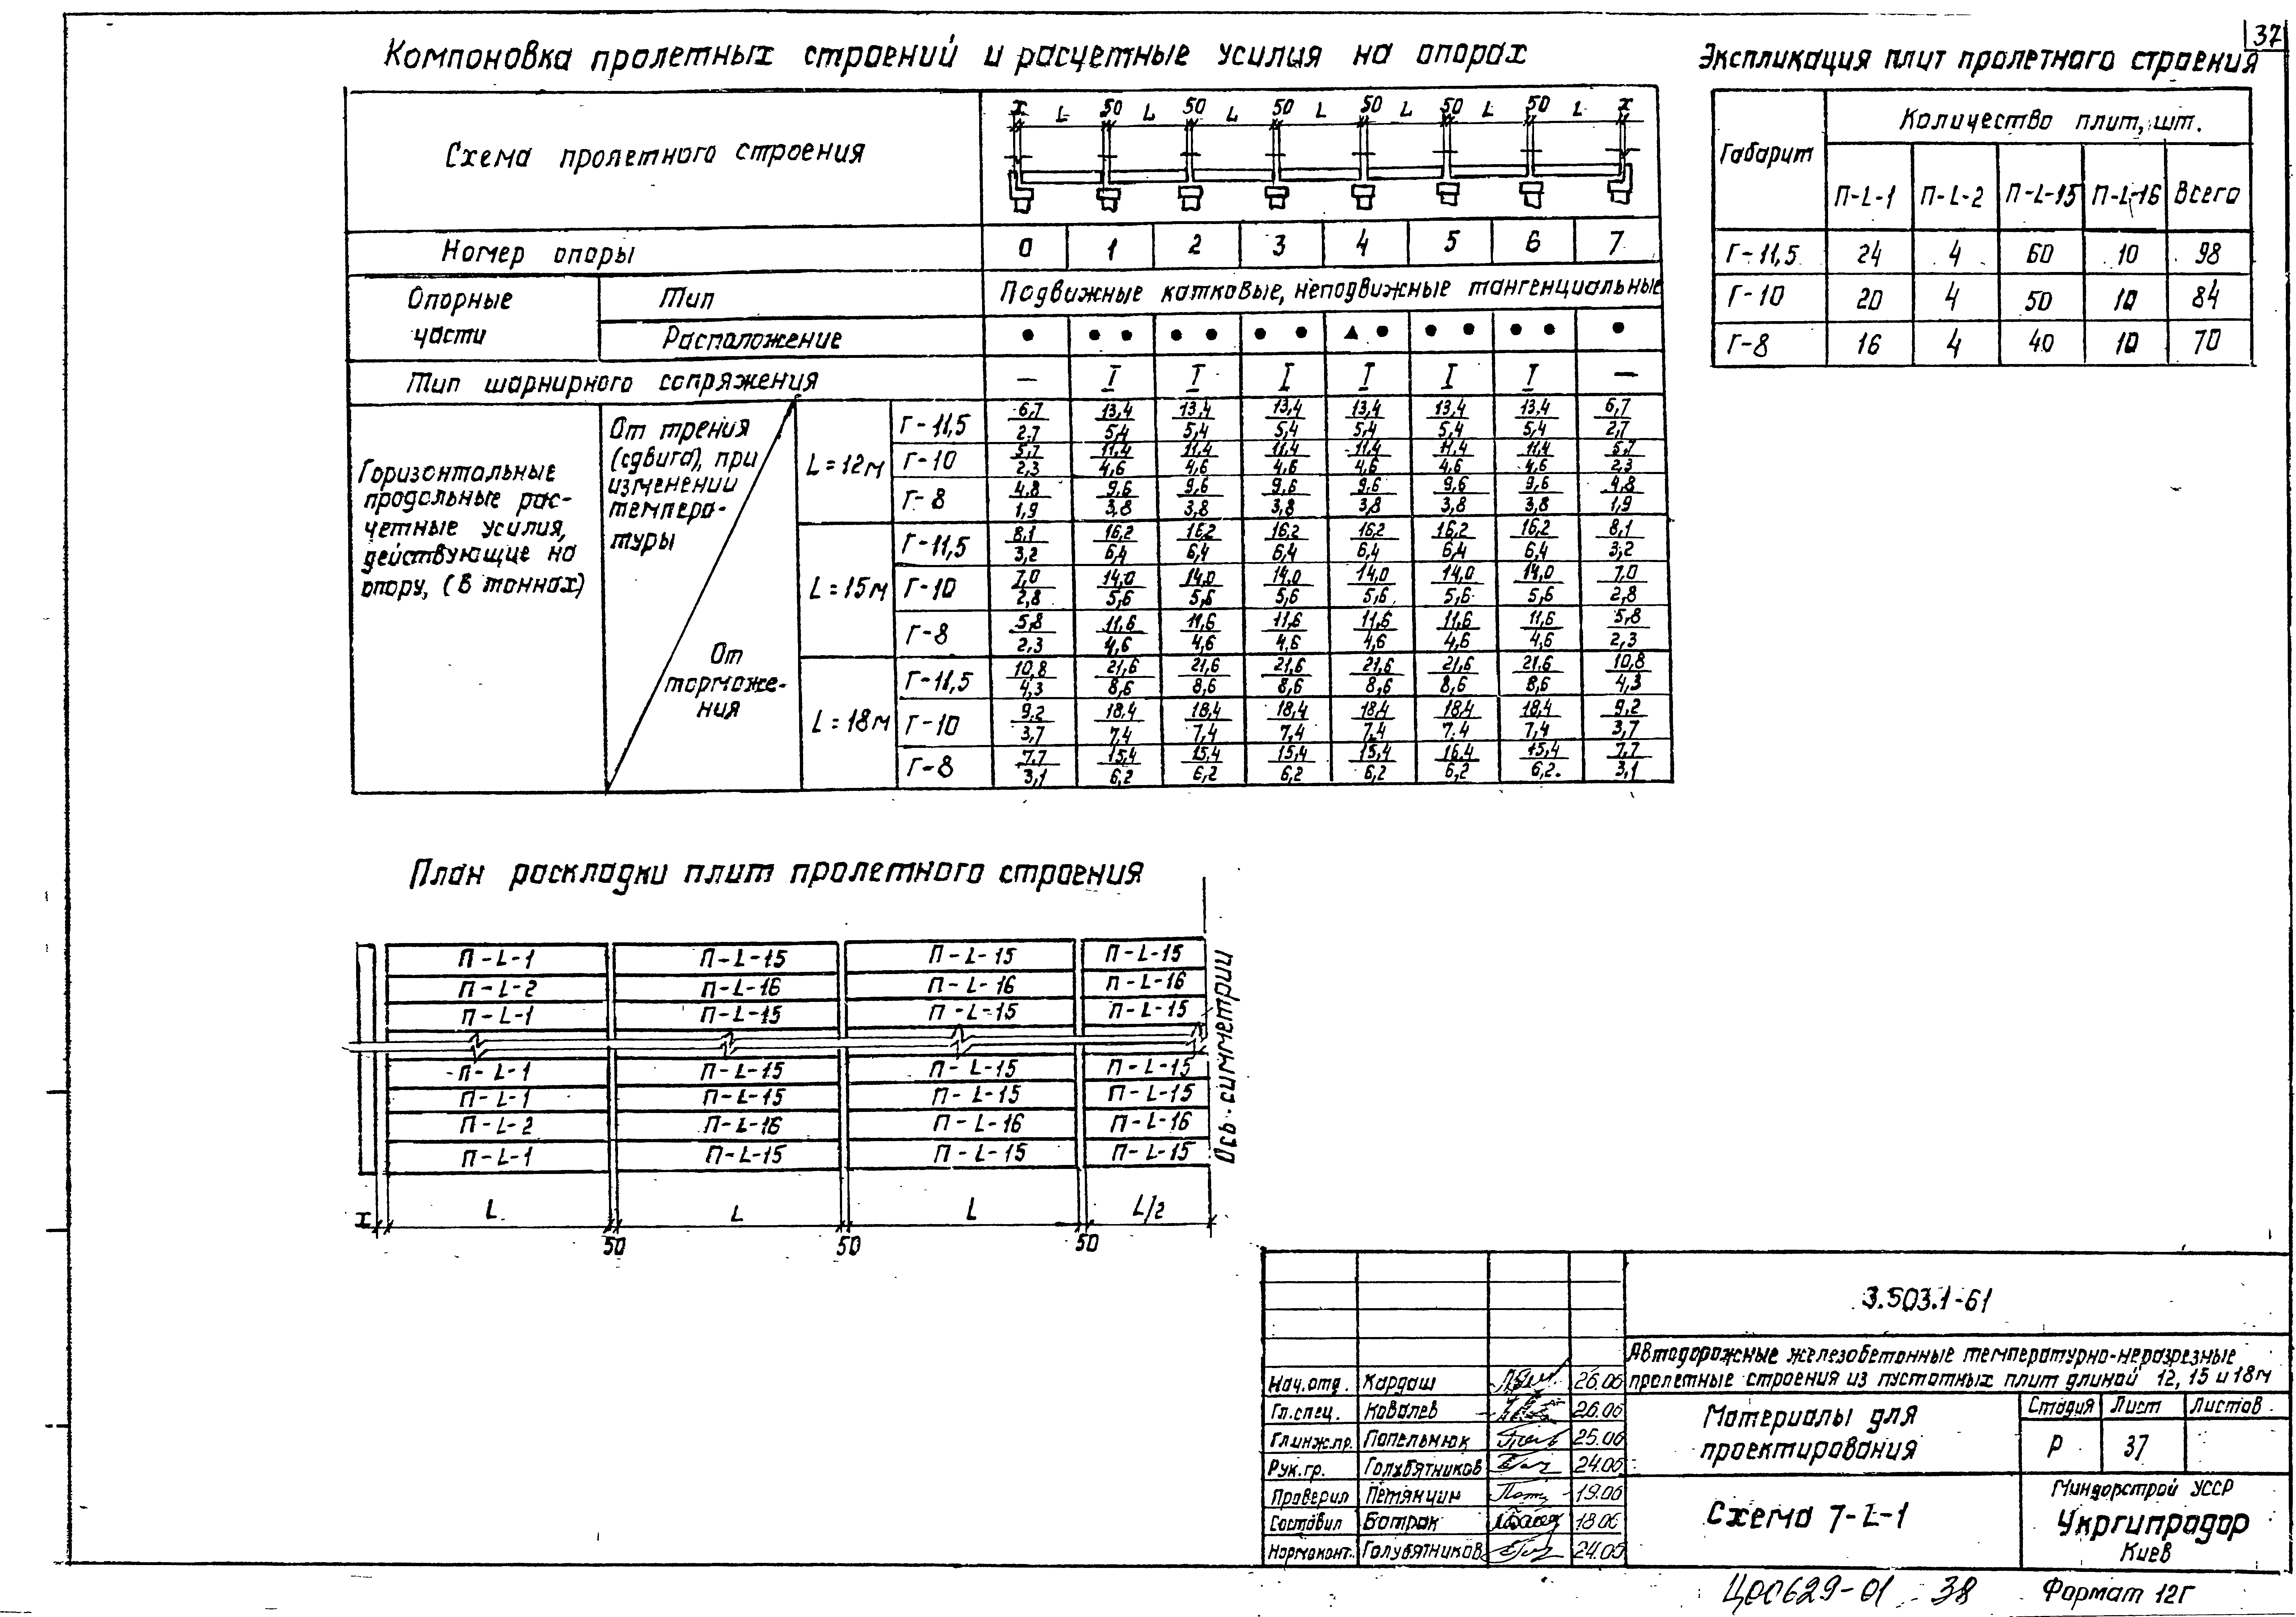 37
Компоновка пролетных строений и расчетные усилия на опорах
Схема пролетного строения
x L 50 L 50 L 50 L 50 L 50 L 50 L x
Номер опоры 0 1 2 3 4 5 6 7
Опорные части
Тип Подвижные катковые, неподвижные тангенциальные
Расположение ● ● ● ● ● ● ● ▲ ● ● ● ● ● ●
Тип шарнирного сопряжения — I I I I I I —
Горизонтальные
продольные рас-
четные усилия,
действующие на
опору, (в тоннах)
От трения
(сдвига), при
изменении
темпера-
туры
От
торможе-
ния
L = 12м
Г-11,5 6,7 13,4 13,4 13,4 13,4 13,4 13,4 6,7
2,7 5,4 5,4 5,4 5,4 5,4 5,4 2,7
Г-10 5,7 11,4 11,4 11,4 11,4 11,4 11,4 5,7
2,3 4,6 4,6 4,6 4,6 4,6 4,6 2,3
Г-8 4,8 9,6 9,6 9,6 9,6 9,6 9,6 4,8
1,9 3,8 3,8 3,8 3,8 3,8 3,8 1,9
L = 15м
Г-11,5 8,1 16,2 16,2 16,2 16,2 16,2 16,2 8,1
3,2 6,4 6,4 6,4 6,4 6,4 6,4 3,2
Г-10 7,0 14,0 14,0 14,0 14,0 14,0 14,0 7,0
2,8 5,6 5,6 5,6 5,6 5,6 5,6 2,8
Г-8 5,8 11,6 11,6 11,6 11,6 11,6 11,6 5,8
2,3 4,6 4,6 4,6 4,6 4,6 4,6 2,3
L = 18м
Г-11,5 10,8 21,6 21,6 21,6 21,6 21,6 21,6 10,8
4,3 8,6 8,6 8,6 8,6 8,6 8,6 4,3
Г-10 9,2 18,4 18,4 18,4 18,4 18,4 18,4 9,2
3,7 7,4 7,4 7,4 7,4 7,4 7,4 3,7
Г-8 7,7 15,4 15,4 15,4 15,4 16,4 15,4 7,7
3,1 6,2 6,2 6,2 6,2 6,2 6,2 3,1
Экспликация плит пролетного строения
Габарит Количество плит, шт.
П-L-1 П-L-2 П-L-15 П-L-16 Всего
Г-11,5 24 4 60 10 98
Г-10 20 4 50 10 84
Г-8 16 4 40 10 70
План раскладки плит пролетного строения
П-L-1 П-L-15 П-L-15 П-L-15
П-L-2 П-L-16 П-L-16 П-L-16
П-L-1 П-L-15 П-L-15 П-L-15
П-L-1 П-L-15 П-L-15 П-L-15
П-L-1 П-L-15 П-L-15 П-L-15
П-L-2 П-L-16 П-L-16 П-L-16
П-L-1 П-L-15 П-L-15 П-L-15
Ось симметрии
x L L L L/2
50 50 50
3.503.1-61
Автодорожные железобетонные температурно-неразрезные
пролетные строения из пустотных плит длиной 12, 15 и 18м
Нач.отд. Кардаш 26.06
Гл.спец. Ковалев 26.06
Гл.инж.пр. Папельнюк 25.06
Рук.гр. Голубятников 24.06
Проверил Петянчин 19.06
Составил Ботрак 18.06
Нормоконт. Голубятников 24.06
Материалы для
проектирования
Стадия Лист Листов
Р 37
Схема 7-L-1
Миндорстрой УССР
Укргипродор
Киев
Ц00629-01 38
Формат 12г